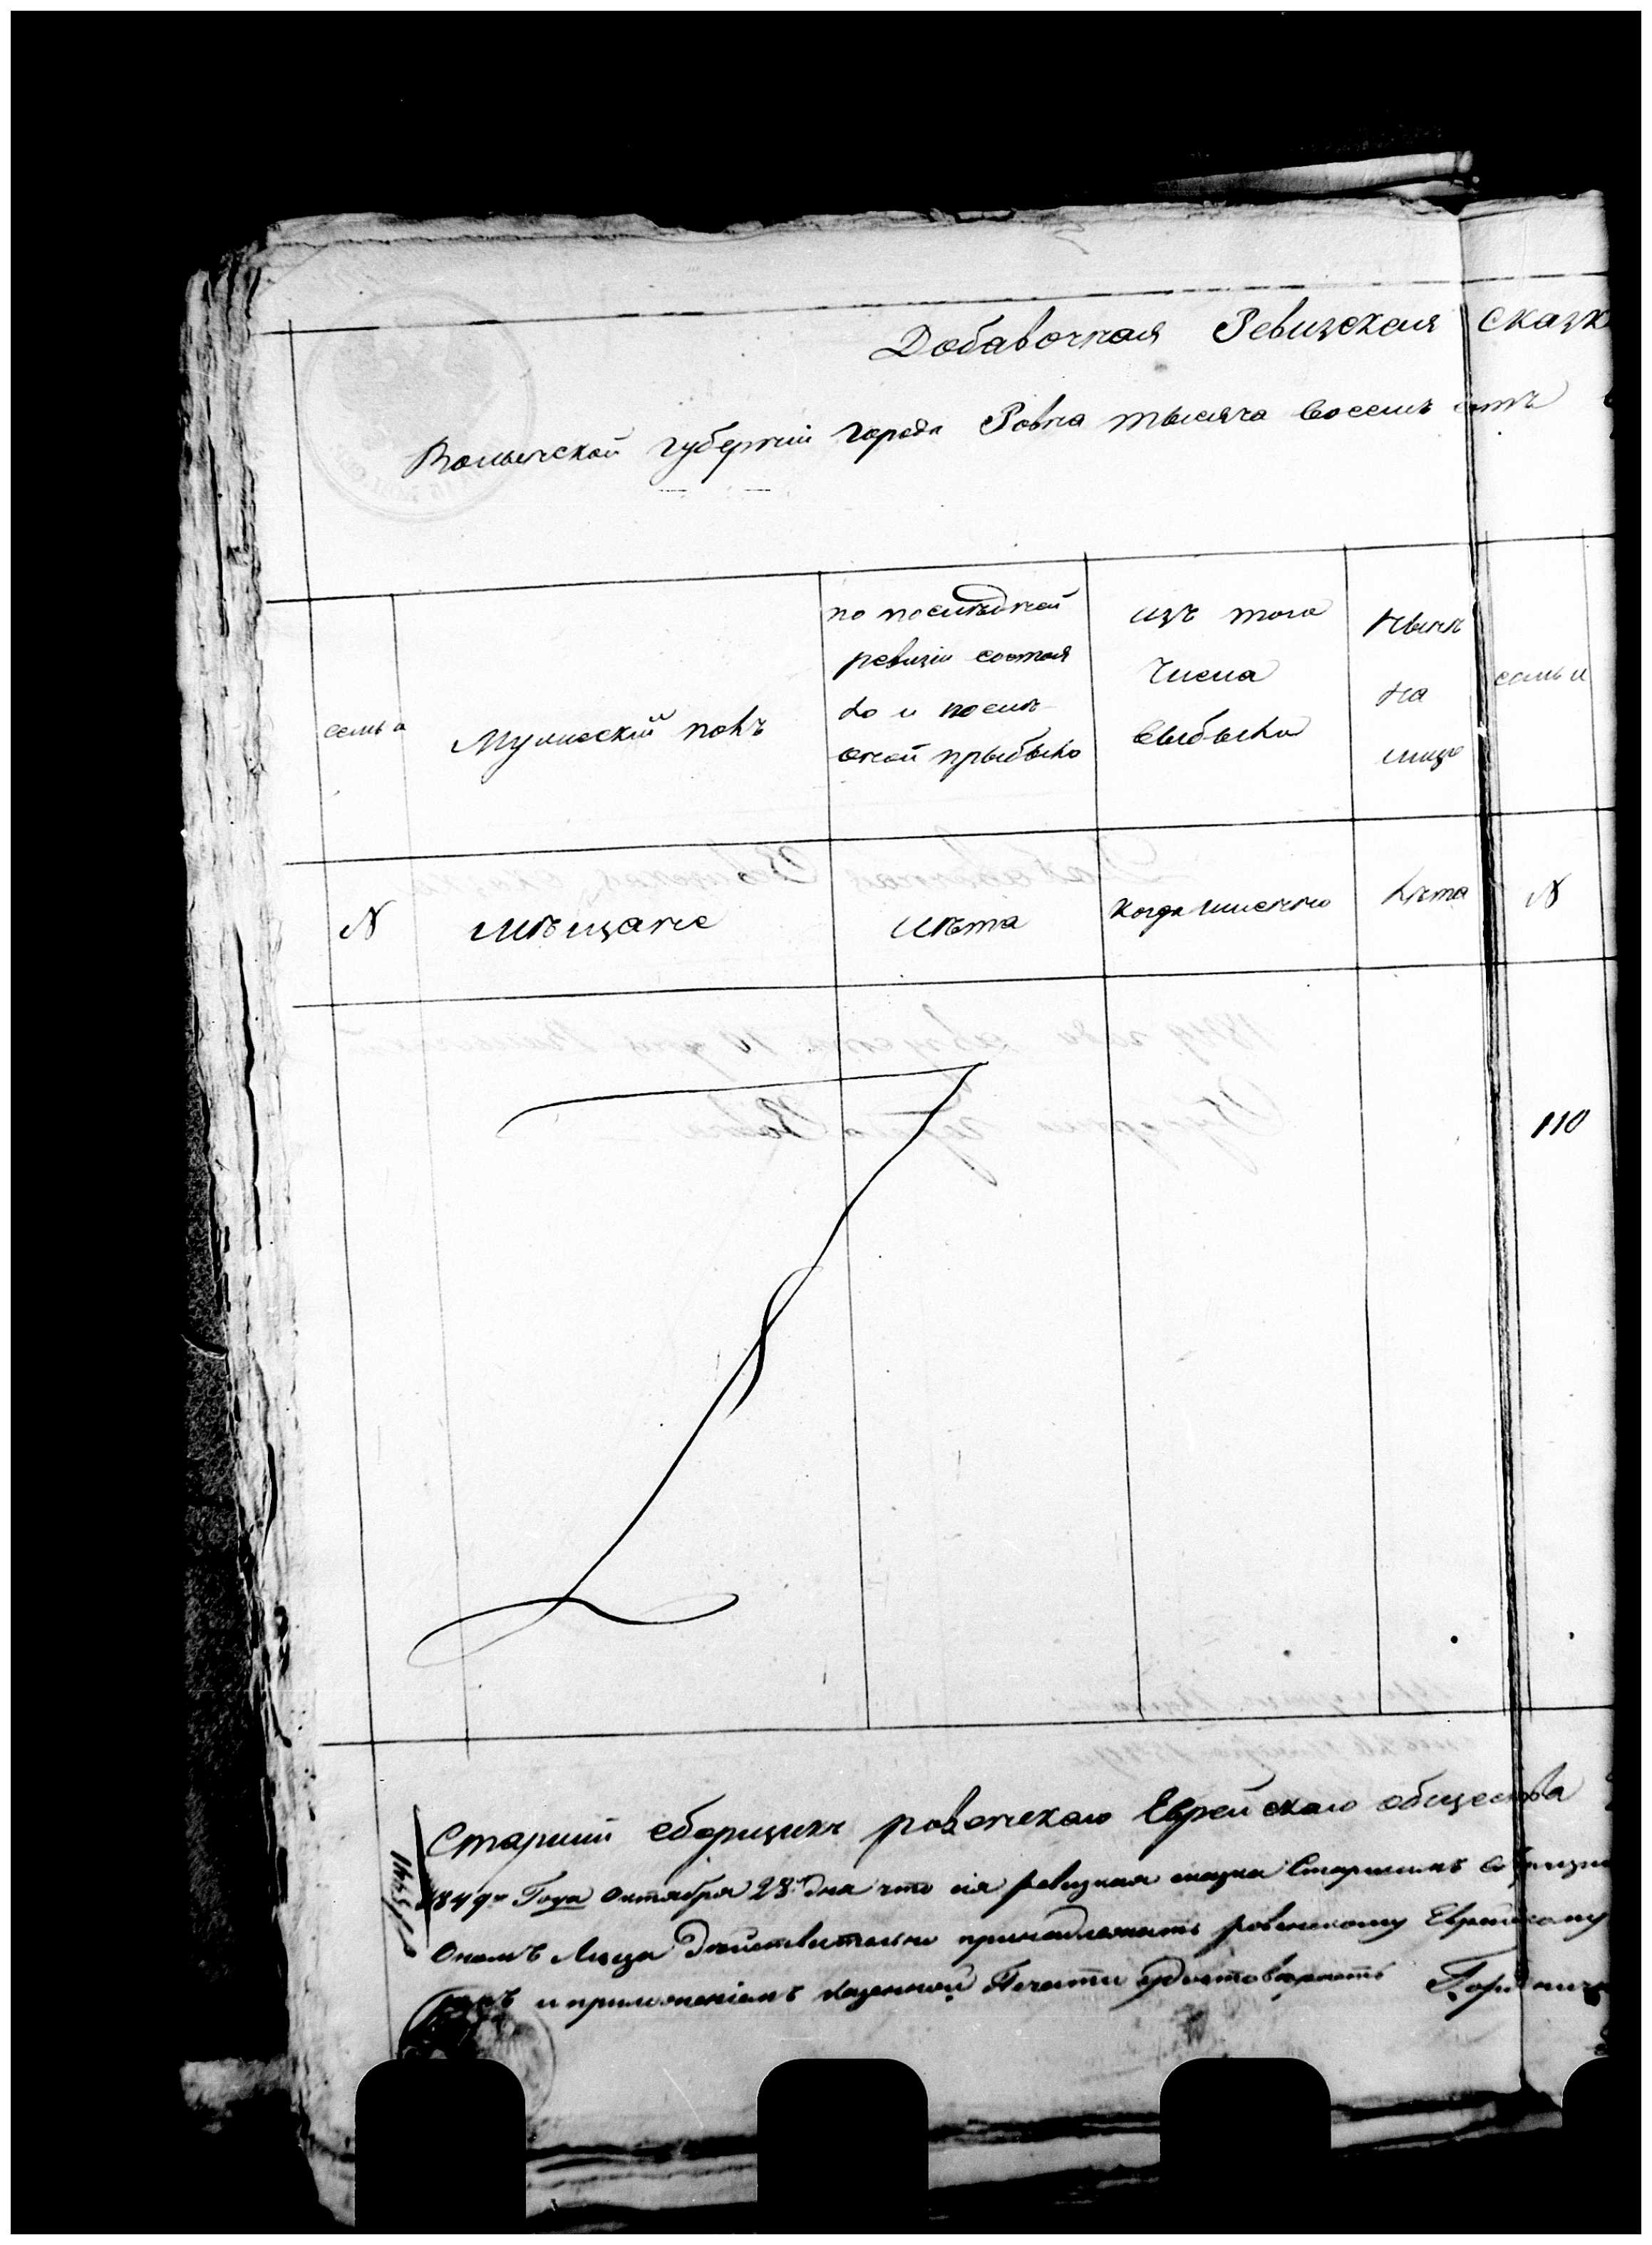 Добавочная Ревизская сказк
Волынской губерний города Ровна тысяча восемь сотъ
семьа
Мужеский полъ
по последней
ревизіи состоя
ло и после
оной прыбыло
изъ того
числа
выбыло
Нынѣ
на
лицо
семьи
N
мѣщане
лѣта
когда именно
лѣта
N
110
Старший сборщикъ ровенского Еврейского общества
1849го Года Октября 28 дня что сія ревизкая сказка Старшимъ
Ономъ Лица Действительно принадлежатъ ровенскому Еврейскому
и приложеніемъ казенной Печати удостоверяетъ